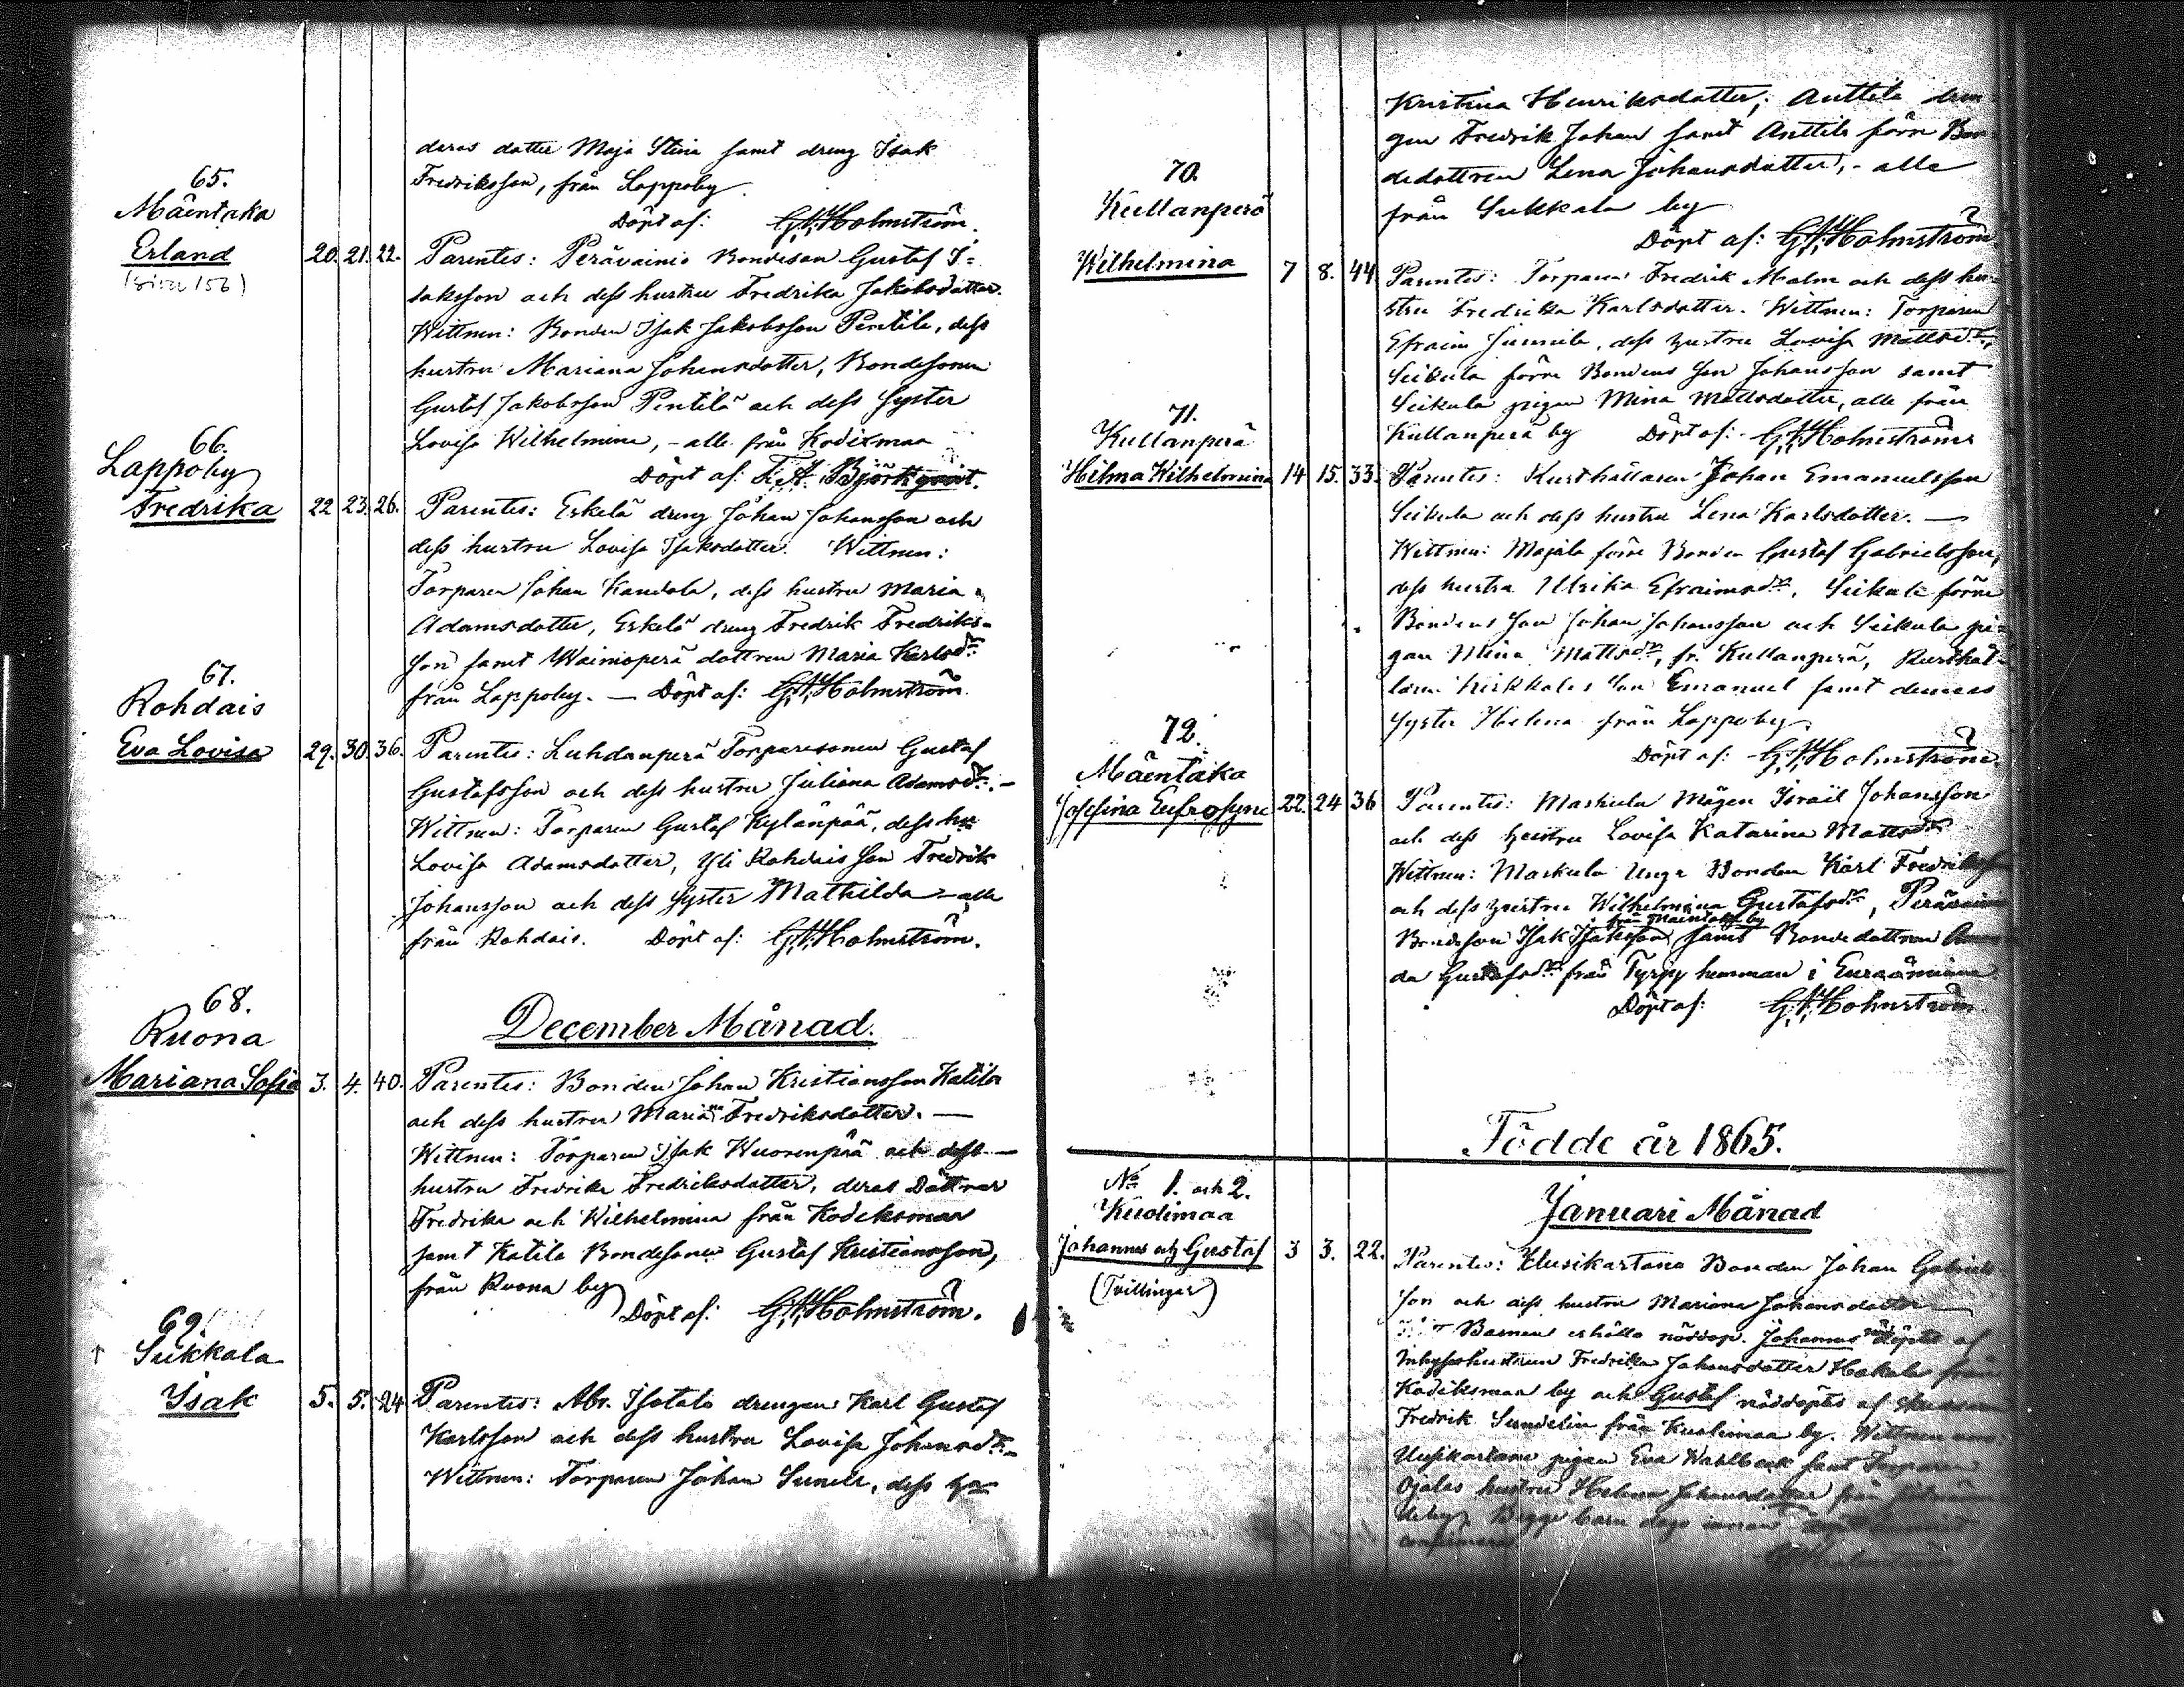 deras dotter Maja Stina samt dreng Isak
Fredriksson, från Lappoby.
Döpt af: G.A. Holmström.
65.
Mäentaka
Erland 20. 21. 22.
Parentes: Perävainio Bondeson Gustaf I=
saksson och dess hustru Fredrika Jakobsdotter.
Wittnen: Bonden Isak Jakobsson Pentilä, dess
hustru Mariana Johansdotter, Bondesonen
Gustaf Jakobsson Pentilä och dess Syster
Lovisa Wilhelmina, - alla från Kodixmaa
Döpt af: F.A. Björkqvist.
66.
Lappoby
Fredrika 22 23. 26.
Parentes: Eskelä dreng Johan Johansson och
dess hustru Lovisa Isaksdotter. Wittnen:
Torparen Johan Kandola, dess hustru Maria
Adamsdotter, Eskelä dreng Fredrik Fredriks-
son samt Wainioperä dottren Maria Karlsdr
från Lappoby. — Döpt af: G.A. Holmström.
67.
Rohdais
Eva Lovisa 29. 30. 36.
Parentes: Luhdanperä Torparesonen Gustaf
Gustafsson och dess hustru Juliana Adamsdr. -
Wittnen: Torparen Gustaf Kylänpää, dess hu
Lovisa Adamsdotter, Yli Rohdais Son Fredrik
Johansson och dess Syster Mathilda - alla
från Rohdais. Döpt af: G.A. Holmström.
December Månad.
68.
Ruona
Mariana Sofia 3. 4. 40.
Parentes: Bonden Johan Kristiansson Katila
och dess hustru Maria Fredriksdotter. —
Wittnen: Torparen Isak Wuorenpää och dess —
hustru Fredrika Fredriksdotter, deras Döttrar
Fredrika och Wilhelmina från Kodeksmaa
samt Katila Bondesonen Gustaf Kristiansson,
från Ruona by
Döpt af: G.A. Holmström.
69.
Sukkala
Isak 5. 5. 24
Parentes: Abr. Isotalo drengen Karl Gustaf
Karlsson och dess hustru Lovisa Johansdr. -
Wittnen: Torparen Johan Sunell, dess hu
Kristina Henriksdotter, Anttila dren
gen Fredrik Johan samt Anttila förre Bon
dedottren Lena Johansdotter, - alla
från Sukkala by
Döpt af: G.A. Holmström
70.
Kullanperä
Wilhelmina 7 8. 44
Parentes: Torparen Fredrik Malm och dess hu-
stru Fredrika Karlsdotter. Wittnen: Torparen
Efraim Junnila, dess hustru Lovisa Mattsdr,
Seikula förre Bondens Son Johansson samt
Seikula pigan Mina Mattsdotter, alla från
Kullanperä by Döpt af: G.A. Holmström
71.
Kullanperä
Hilma Wilhelmina 14 15. 33.
Parentes: Kursthållaren Johan Emanuelsson
Seikula och dess hustru Lena Karlsdotter. —
Wittnen: Majala förre Bonden Gustaf Gabrielsson,
dess hustru Ulrika Efraimsdr, Seikula förre
Bondens Son Johan Johansson och Seikula pi-
gan Mina Mattsdr, fr. Kullanperä,
Son Emanuel samt dennes
Syster Helena från Lappoby
Döpt af: G.A. Holmström
72.
Mäentaka
Josefina Eufrosyne 22. 24 36
Parentes: Maskula Mågen Israël Johansson
och dess hustru Lovisa Katarina Mattsdr
Wittnen: Maskula Unga Bonden Karl Fredriksson
och dess hustru Wilhelmina Gustafsdr, Perävainio
från Mäentaka by
Bondeson Isak Isaksson samt Bondedottren Aman
da Gustafsdr från Tyrpy hemman i Euraåminne
Döpt af: G.A. Holmström
Födde år 1865.
Januari Månad
No 1. och 2.
Kuolimaa
Johannes och Gustaf 3 3. 22.
(Tvillingar)
Parentes: Uusikartano Bonden Johan Gabriels
son och dess hustru Mariana Johansdotter
Barnen erhöllo nöddop. Johannes nöddöptes af
Inhyseshustrun Fredrika Johansdotter Hakala från
Kodiksmaa by och Gustaf nöddöptes af
Fredrik Sundelin från Kuolimaa by. Wittnen
Uusikartano pigan Eva Wahlbeck samt Torparen
Ojalas hustru Helena Johansdotter från
Begge barn dogo innan